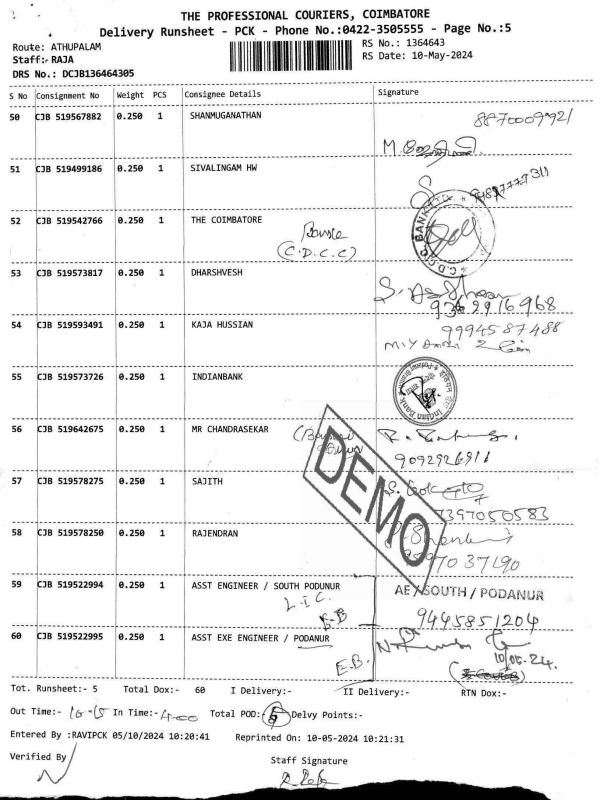 THE PROFESSIONAL COURIERS, COIMBATORE
Delivery Runsheet - PCK - Phone No.:0422-3505555 - Page No.:5
Route: ATHUPALAM
Staff: RAJA
DRS No.: DCJB136464305
RS No.: 1364643
RS Date: 10-May-2024
S No Consignment No Weight PCS Consignee Details Signature
50 CJB 519567882 0.250 1 SHANMUGANATHAN 8870009921
51 CJB 519499186 0.250 1 SIVALINGAM HW
52 CJB 519542766 0.250 1 THE COIMBATORE
(C.D.C.C)
53 CJB 519573817 0.250 1 DHARSHVESH
54 CJB 519593491 0.250 1 KAJA HUSSIAN 9994587488
55 CJB 519573726 0.250 1 INDIANBANK
Indian Bank
56 CJB 519642675 0.250 1 MR CHANDRASEKAR
9092926911
57 CJB 519578275 0.250 1 SAJITH
7397050583
58 CJB 519578250 0.250 1 RAJENDRAN
DEMO
59 CJB 519522994 0.250 1 ASST ENGINEER / SOUTH PODUNUR AE/SOUTH / PODANUR
L.I.C.
E.B 9445851204
60 CJB 519522995 0.250 1 ASST EXE ENGINEER / PODANUR
E.B. 10/05.24.
Tot. Runsheet:- 5 Total Dox:- 60 I Delivery:- II Delivery:- RTN Dox:-
Out Time:- 10-15 In Time:- 4-00 Total POD:- Delvy Points:-
Entered By :RAVIPCK 05/10/2024 10:20:41 Reprinted On: 10-05-2024 10:21:31
Verified By Staff Signature